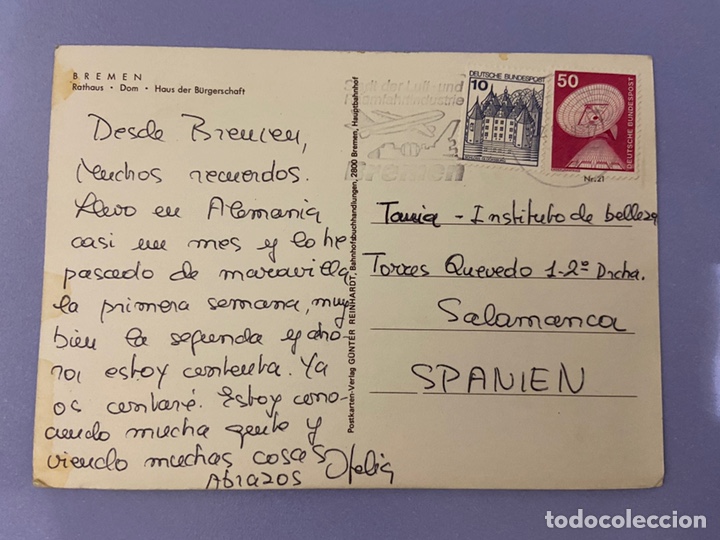 BREMEN
Rathaus · Dom · Haus der Bürgerschaft
Desde Bremen,
Muchos recuerdos.
Llevo en Alemania
casi un mes y lo he
pasado de maravilla
la primera semana, muy
bien la segunda y aho-
ra, estoy contenta. Ya
os contaré. Estoy cono-
ciendo mucha gente y
viendo muchas cosas
Abrazos Ofelia
Postkarten-Verlag GÜNTER REINHARDT, Bahnhofsbuchhandlungen, 2800 Bremen, Hauptbahnhof
Stadt der Luft- und
Raumfahrtindustrie
Bremen
DEUTSCHE BUNDESPOST
10
50
DEUTSCHE BUNDESPOST
Nr. 21
Tania - Instituto de belleza
Torres Quevedo 1-2º Drcha.
Salamanca
SPANIEN
todocoleccion.net